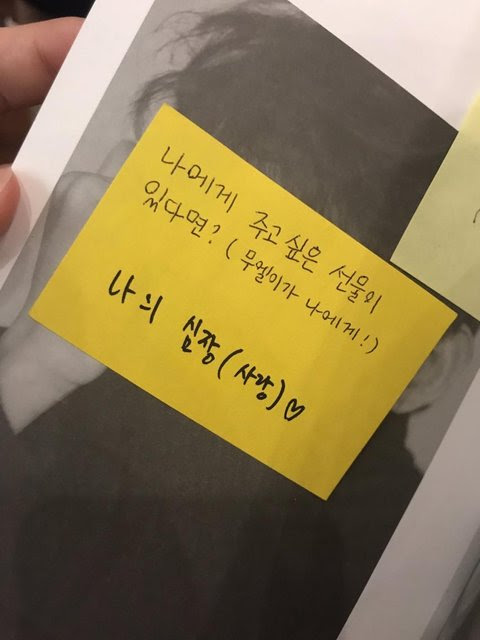 나에게 주고싶은 선물이
있다면? (무엘이가 나에게!)
나의 심장(사랑)♡